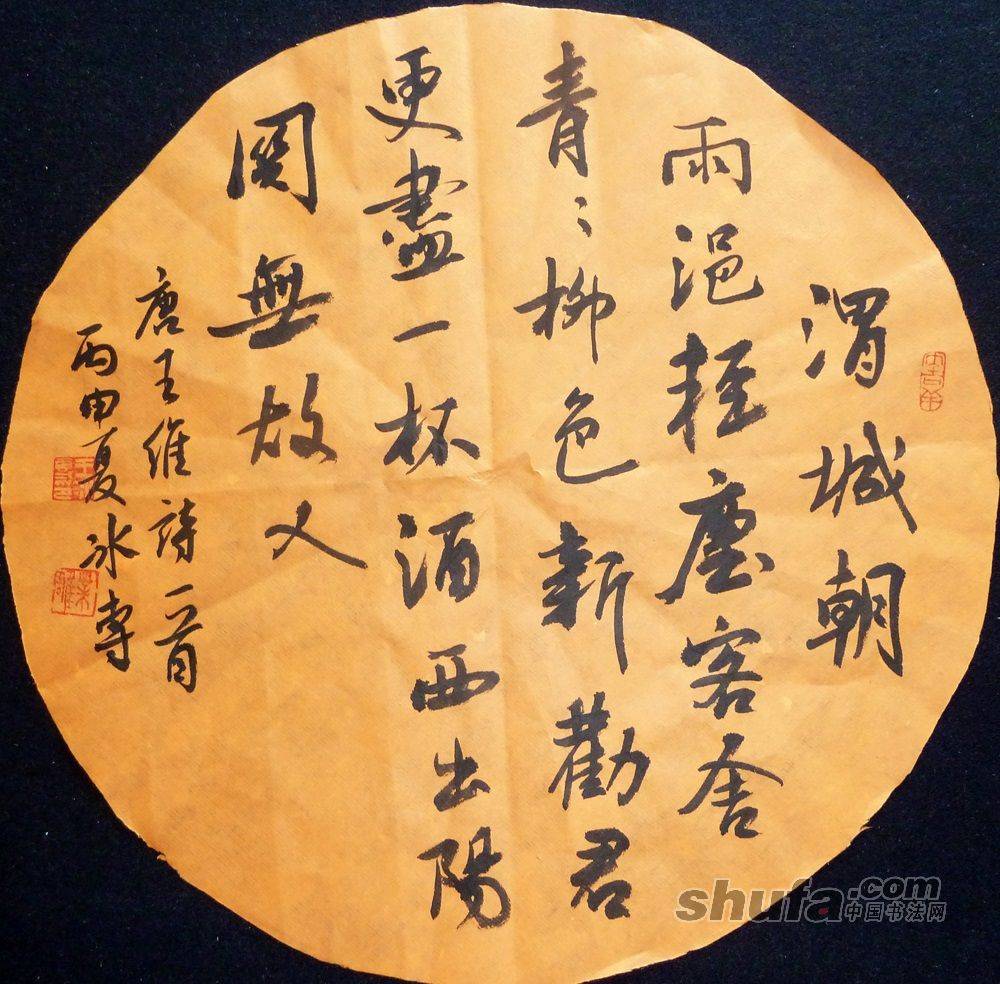 渭城朝
雨浥輕塵客舍
青〻柳色新勸君
更盡一杯酒西出陽
関無故人
唐王維詩一首
丙申夏冰專
shufa.com
中国书法网